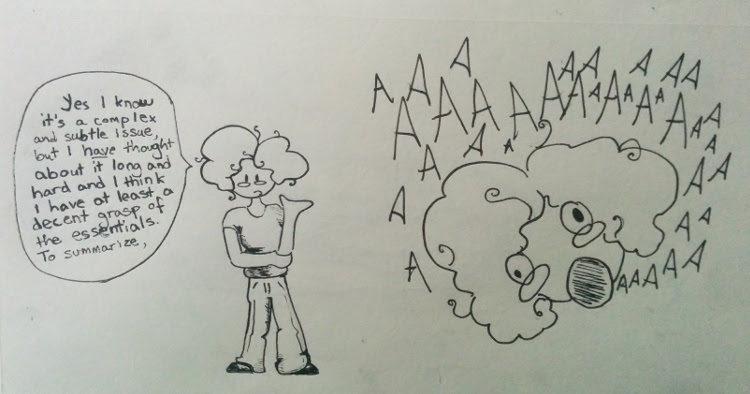 Yes I know
it's a complex
and subtle issue,
but I have thought
about it long and
hard and I think
I have at least a
decent grasp of
the essentials.
To summarize,
A
A A A A A A
A A A A A A A A A A A A A
A A A A
A A A
A A A
A A A
A A A
A A A A A A